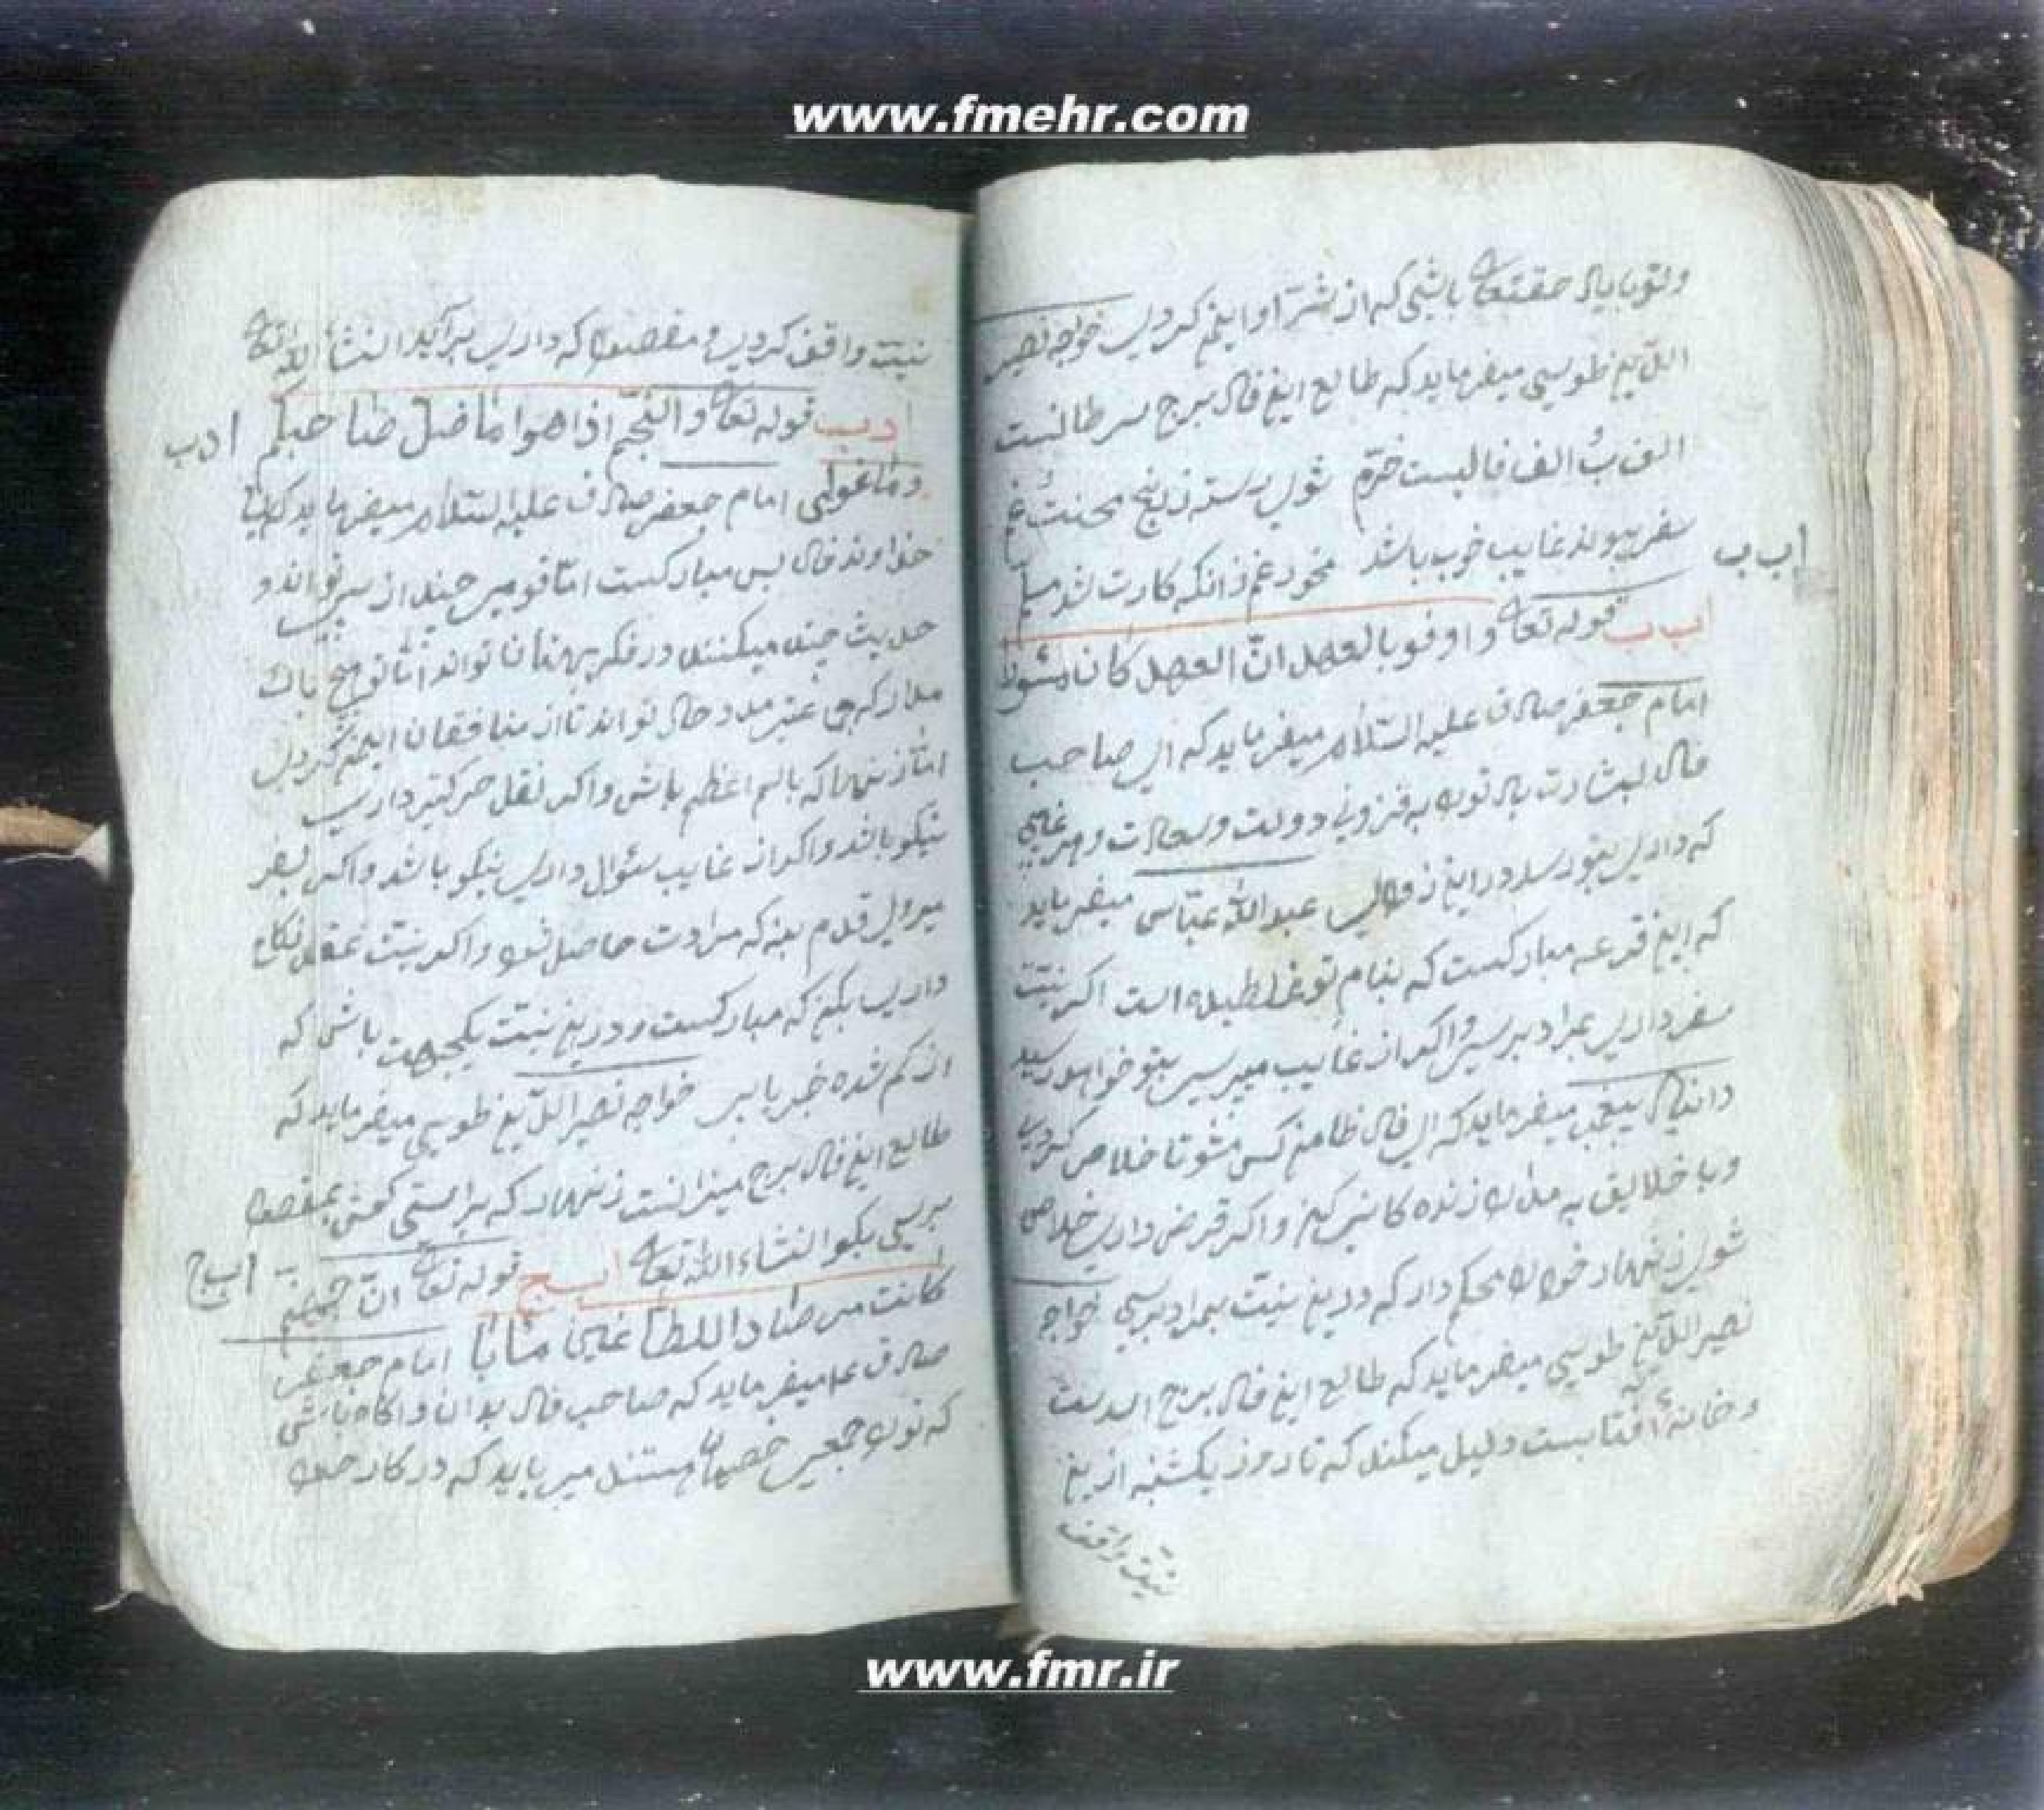 www.fmehr.com
باشی که از شر او ایمن کردی خواجه نصیر
الدین طوسی میفرماید که طالع این فال برج سرطانست
الف ب الف فالیست خرم شوی رسته ز رنج محنت و غم
سفر پیوند غایب خوب باشد مخور غم زانکه کارت شد مسلم
ا ب ب
ا ب ب قوله تعا و اوفو بالعهد ان العهد کان مسئولا
امام جعفر صادق علیه السلام میفرماید که ای صاحب
فال بشارت باد ترا به فزونی دولت و سعادت و هر
که داری بتو رسد در این عبدالله عباسی میفرماید
که این قرعه مبارکست که بنام تو است اکر نیت
سفر داری بمراد برسی و اکر از غایب میپرسی بتو خواهد رسید
دانیال پیغمبر میفرماید که ای فال ضامن کس مشو تا خلاص کردی
و با خلایق به مدارا زنده کانی کن و اکر قرض داری خلاص
شوی زنهار خود را محکم دار که درین نیت بمراد برسی خواجه
نصیر الدین طوسی میفرماید که طالع این فال برج اسدست
و خانهٔ آفتابست دلیل میکند که تا روز یکشنبه ازین
نیت واقف
نیت واقف کردی و مقصود که داری برآید انشأ الله تعا
ا د ب قوله تعا والنجم اذا هوا ما ضل صاحبکم
ا د ب
و ما غوی امام جعفر صادق علیه السلام میفرماید که
خداوند فال بس مبارکست اما قومی چند از
حدیث چند میکنند در فکر تواند اما تو هیچ باک
مدار که مدد حال تواند تا از منافقان ایمن کردی
اما زنهار که با اسم اعظم باش و اکر نقل حرکت داری
نیکو باشد و اکر از غایب سئوال داری نیکو باشد و اکر بسفر
میروی قدم بنه که مرادت حاصل شود و اکر نیت عقد نکاح
داری بکن که مبارکست و درین نیت یکجهت باش که
از کم شده خبر یابی خواجه نصیر الدین طوسی میفرماید که
طالع این فال برج میزانست زنهار که براستی کوش بمقصود
برسی بکو انشاء الله تعا ا ب ج قوله تعا ان جهنم
ا ب ج
کانت مرصادا للطاغین مئابا امام جعفر
صادق ع میفرماید که صاحب فال بدان و آکاه باش
که ترا جمعی خصمان هستند می باید که در کار خود
www.fmr.ir